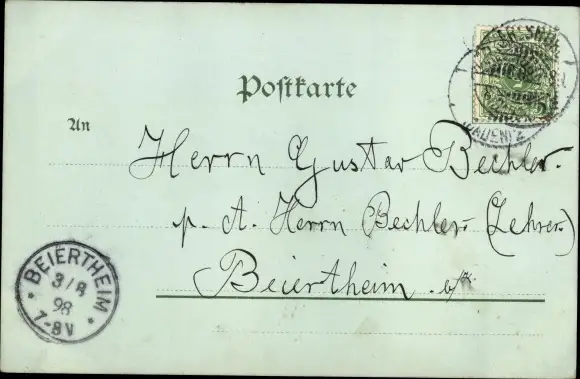 Postkarte
An
Herrn Gustav Bechler.
p. A. Herrn Bechler (Lehrer)
Beiertheim
BEIERTHEIM
3/8
98
7-8V